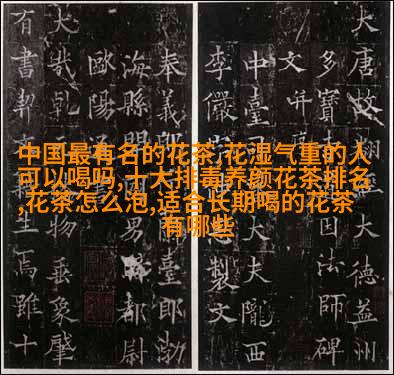 中国最有名的花茶,花湿气重的人
可以喝吗,十大排毒养颜花茶排名
,花茶怎么泡,适合长期喝的花茶
有哪些
大唐故翻大德益州
多寶因法師碑
文并
中臺司大夫隴西
李儼製文
奉義郎臺郎渤
海縣開男都尉
歐陽
大哉乾物垂象肇
有書契焉雖十